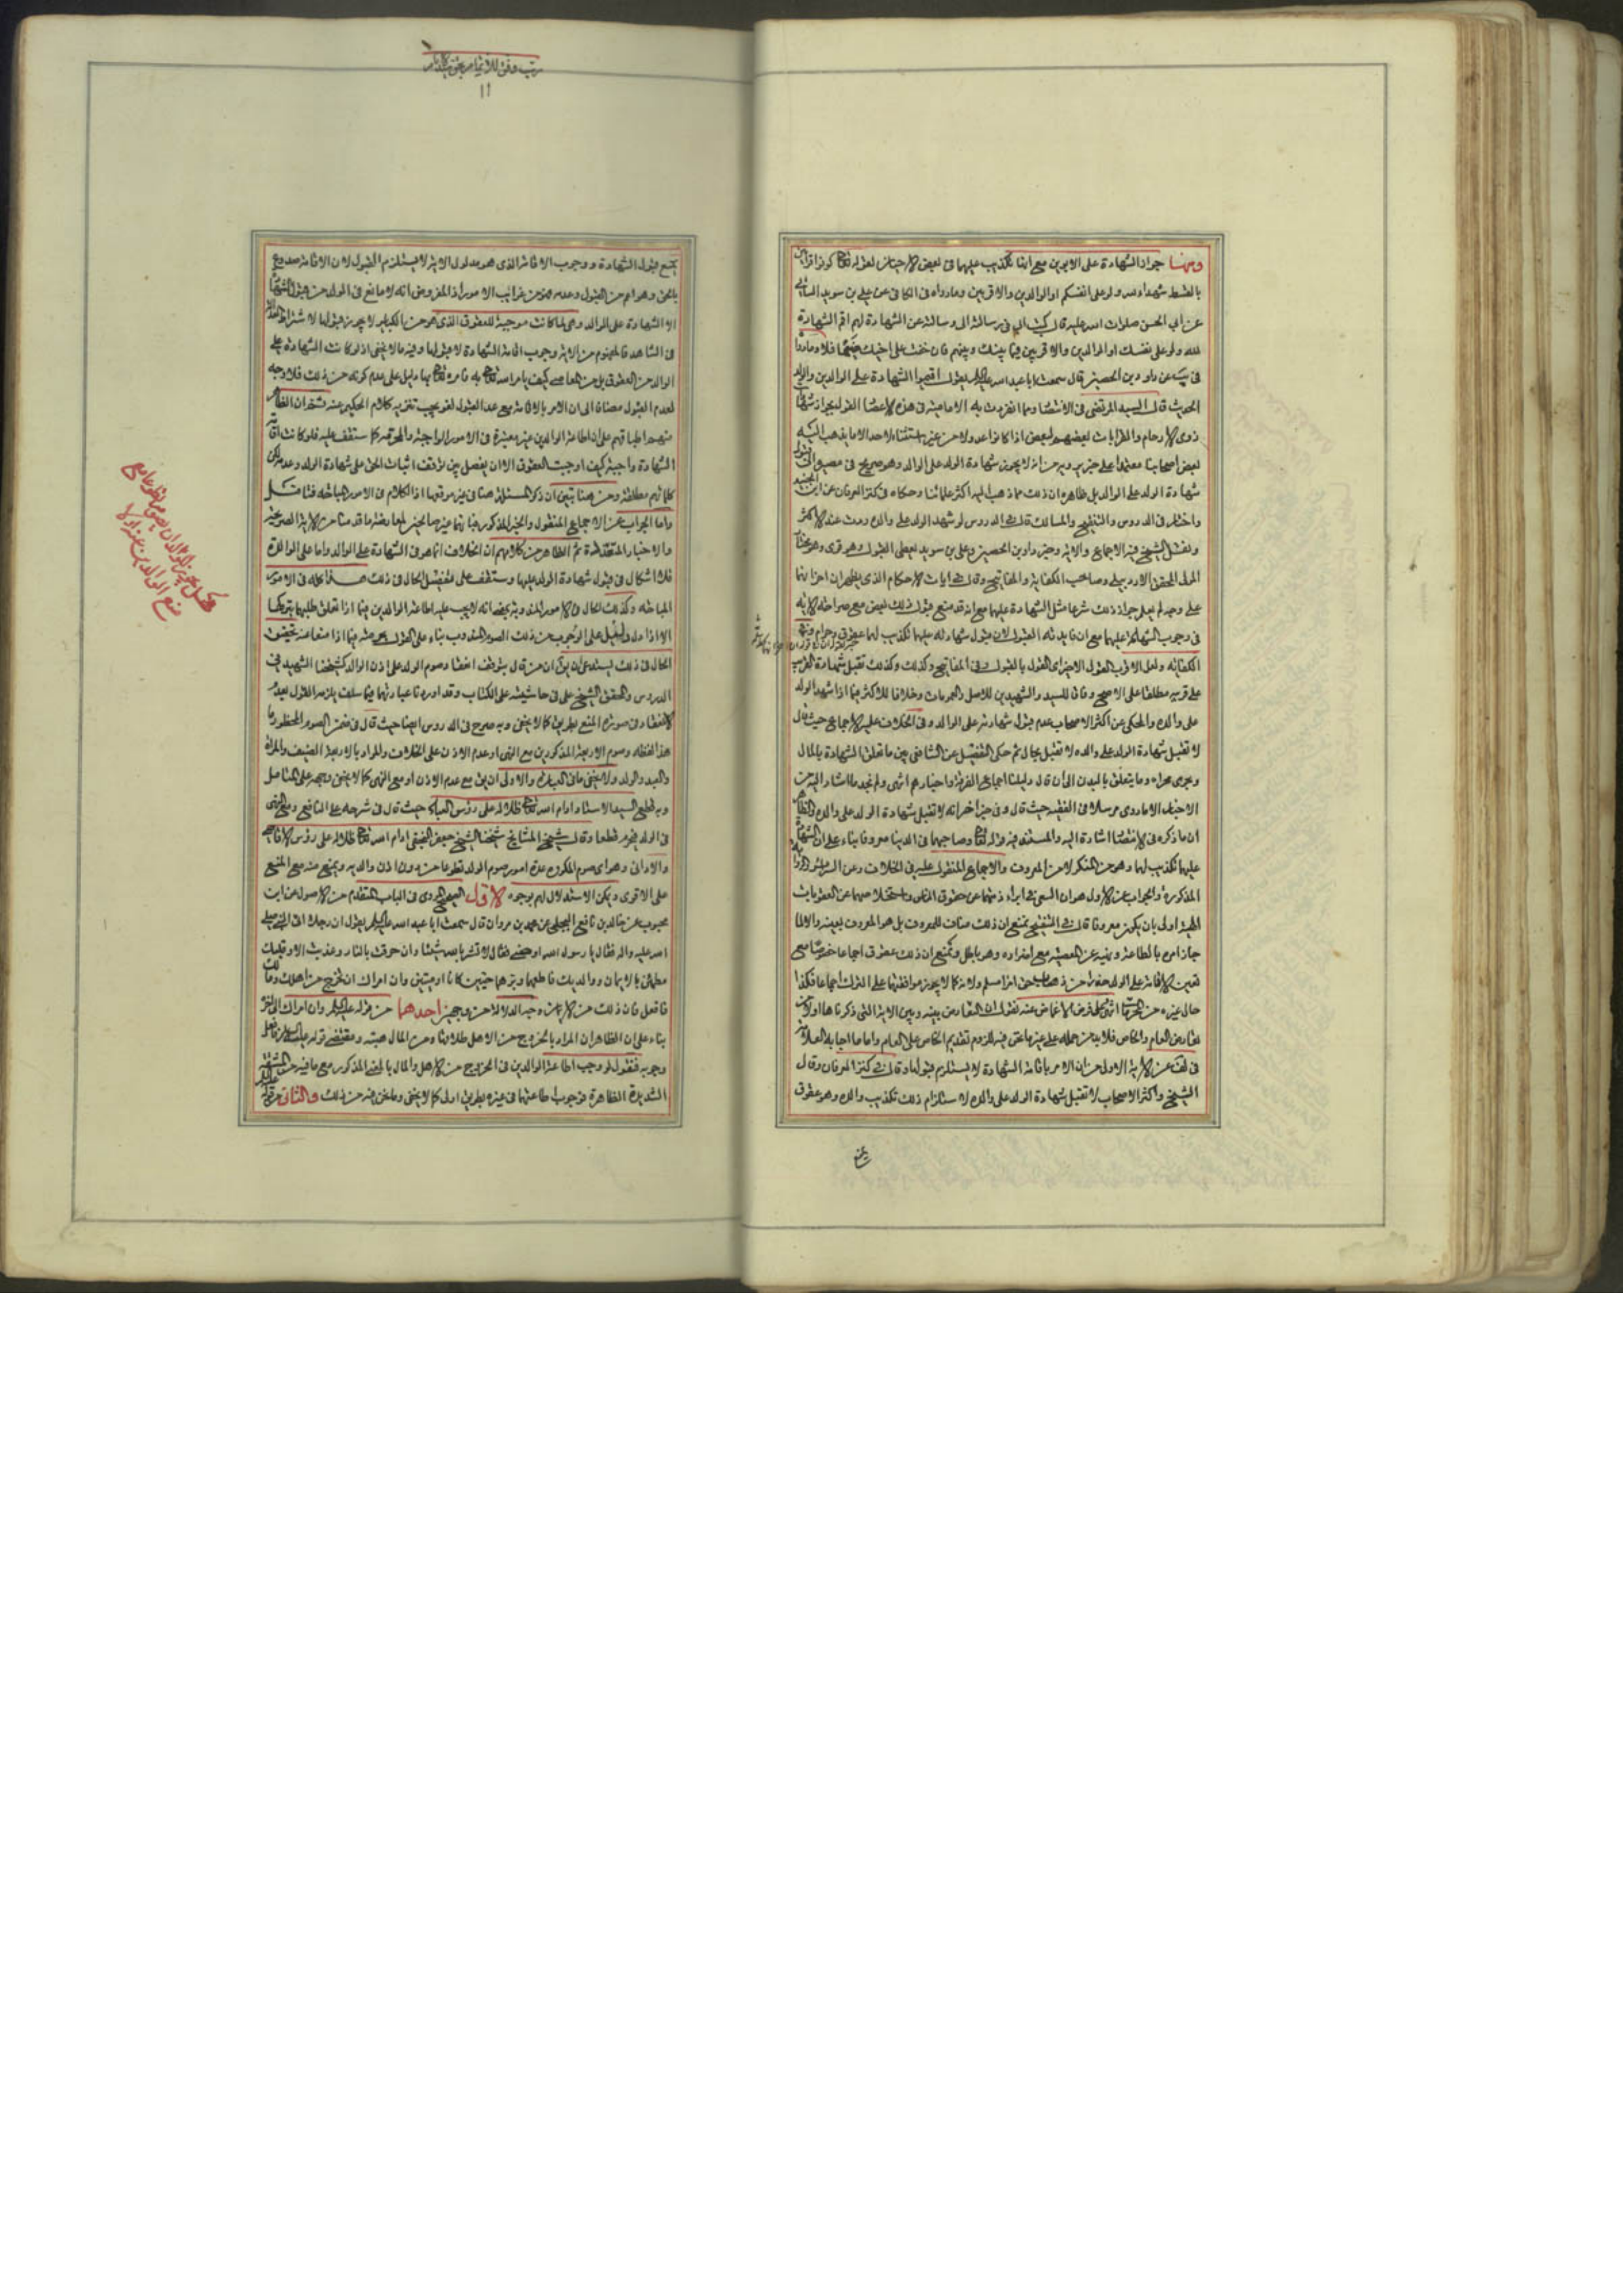 ومنها جواز الشهادة على الابوين مع انها تكذيب عليهما في بعض الاحيان لقوله تعالى كونوا قوامين
بالقسط شهداء لله ولو على انفسكم او الوالدين والاقربين وما رواه في الكافي عن علي بن سويد السائي
عن ابي الحسن صلوات الله عليه قال كتب الي في رسالته الي وسالته عن الشهادة لهم اقم الشهادة
لله ولو على نفسك او الوالدين والاقربين فيما بينك وبينهم فان خفت على اخيك ضيما فلا وما رواه
في عن داود بن الحصين قال سمعت ابا عبد الله عليه السلام يقول اقيموا الشهادة على الوالدين والولد
الحديث قال السيد المرتضى في الانتصار ومما انفردت به الامامية في هذه الاعصار القول بجواز شهادة
ذوي الارحام والقرابات بعضهم لبعض اذا كانوا عدولا من غير استثناء لاحد الا ما يذهب اليه
بعض اصحابنا معتمدا على خبر يرويه من انه لا يجوز شهادة الولد على الوالد وهو صريح في مصيره الى قبول
شهادة الولد على الوالد بل ظاهره ان ذلك مما ذهب اليه اكثر علمائنا وحكاه في كنز العرفان عن ابن الجنيد
واختاره في الدروس والتنقيح والمسالك قال في الدروس لو شهد الولد على والده ردت عند الاكثر
ونقل الشيخ فيه الاجماع والاية وخبر داود بن الحصين وعلي بن سويد يعطي القبول وهو قوي وهو مختار
المولى المحقق الاردبيلي وصاحب الكفاية والمفاتيح وقال في ايات الاحكام الذي يظهر ان احزانهما
على وجه لم يعلم جواز ذلك شرعا مثل الشهادة عليهما مع انه قد منع قبول ذلك بعض مع صراحة الاية
في وجوب الشهادة عليهما مع ان فايدته القبول لان قبول شهادته عليهما تكذيب لهما عقوق وحرام وفي
الكفاية ولعل الاقرب القول الاخير اي القول بالقبول وفي المفاتيح وكذلك وكذلك تقبل شهادة القريب
على قريبه مطلقا على الاصح وفاقا للسيد والشهيدين للاصل والعمومات وخلافا للاكثر فيما اذا شهد الولد
على والده والمحكي عن اكثر الاصحاب عدم قبول شهادته على الوالد وفي الخلاف عليه الاجماع حيث قال
لا تقبل شهادة الولد على والده لا تقبل بحال ثم حكى التفصيل عن الشافعي بين ما تعلق الشهادة بالمال
ويجري مجراه وما يتعلق بالبدن الى ان قال دليلنا اجماع الفرقة واخبارهم انتهى ولم نجد ما اشار اليه من
الاخبار الا ما روى مرسلا في الفقيه حيث قال وفي خبر اخر انه لا تقبل شهادة الولد على والده والظاهر
ان ما ذكره في الانتصار اشارة اليه والمستند فيه قوله تعالى وصاحبهما في الدنيا معروفا بناء على ان الشهادة
عليهما تكذيب لهما وهو من المنكر لا من المعروف والاجماع المنقول عليه في الخلاف وعن السرائر والرواية
المذكورة والجواب عن الاول هو ان السعي في ابراء ذمتهما عن حقوق الناس واستخلاصهما عن العقوبات
اولى بان يكون معروفا قال في التنقيح نمنع ان ذلك مناف للمعروف بل هو المعروف بعينه والا لما
جاز امره بالطاعة ونهيه عن المعصية مع افراده وهو باطل ونمنع ان ذلك عقوق اجماعا خصوصا مع
تعين الاقامة على الولد حذرا من ذهاب حق امرء مسلم ولانه كما لا يجوز موافقتهما على الترك اجماعا فكذا
حال غيره من المحرمات انتهى وعلى فرض الاغماض عنه نقول ان التعارض بينه وبين الاية التي ذكرناها اولا من
تعارض العام والخاص فلا بد من حمله على غير ما نحن فيه للزوم تقديم الخاص على العام واما ما اجاب به العلامة
في لف عن الاية الاولى من ان الامر باقامة الشهادة لا يستلزم قبولها وقال في كنز العرفان وقال
الشيخ واكثر الاصحاب لا تقبل شهادة الولد على والده لاستلزام ذلك تكذيب والده وهو عقوق
يمنع
يمنع قبول الشهادة ووجوب الاقامة الذي هو مدلول الاية لا يستلزم القبول لان الاقامة صدوع
بالحق وهو اعم من القبول وعدمه فمن غرائب الامور اذ المفروض انه لا مانع في الولد من قبول الشهادة
الا الشهادة على الوالد وهي لما كانت موجبة للعقوق الذي هو من الكباير لا يجوز قبولها لاشتراط العدالة
في الشاهد فالمفهوم من الاية وجوب اقامة الشهادة لا قبولها وفيه ما لا يخفى اذ لو كانت الشهادة على
الوالد من العقوق بل من المعاصي كيف يامر الله تعالى به فامره تعالى بها دليل على عدم كونه من ذلك فلا وجه
لعدم القبول مضافا الى ان الامر بالاقامة مع عدم القبول لغو يجب تنزيه كلام الحكيم عنه ثم ان الظاهر
منهم اطباقهم على ان اطاعة الوالدين غير معتبرة في الامور الواجبة والمحرمة كما ستقف عليه فلو كانت اقامة
الشهادة واجبة كيف اوجبت العقوق الا ان يفصل بين توقف اثبات الحق على شهادة الولد وعدمه لكن
كلماتهم مطلقة ومن هنا تبين ان ذكر المسئلة هنا في غير موقعها اذا الكلام في الامور المباحة فتامل
واما الجواب عن الاجماع المنقول والخبر المذكور فبانهما غير صالحين لمعارضة ما قدمنا من الاية الصريحة
والاخبار المتقدمة ثم الظاهر من كلامهم ان الخلاف انما هو في الشهادة على الوالد واما على الوالدة
فلا اشكال في قبول شهادة الولد عليها وستقف على تفصيل الحال في ذلك هذا كله في الامور
المباحة وكذلك الحال في الامور المندوبة يعني انه لا يجب عليه اطاعة الوالدين فيما اذا تعلق طلبهما بتركها
الا اذا دل دليل على الوجوب من ذلك الصوم المندوب بناء على القول فيما اذا منعا عنه تحقيق
الحال في ذلك يستدعي ان يقال ان من قال بتوقف انعقاد صوم الولد على اذن الوالد كشيخنا الشهيد في
الدروس والمحقق الشيخ علي في حاشيته على الكتاب وقد اوردنا عبارتهما فيما سلف يلزمه القول بعدم
الانعقاد في صورة المنع بطريق كما لا يخفى وبه صرح في الدروس ايضا حيث قال في ضمن الصوم المحظور ما
هذا لفظه وصوم الاربعة المذكورين مع النهي او عدم الاذن على الخلاف والمراد بالاربعة الضيف والمراة
والعبد والولد ولا يخفى ما في العبارة والاولى ان يق مع عدم الاذن او مع النهي كما لا يخفى وجهه على المتامل
وبه قطع السيد الاستاد ادام الله تعالى ظلاله على رؤس العباد حيث قال في شرحه على النافع ومع النهي
في الولد يحرم قطعا وقال شيخ المشايخ شيخنا الشيخ جعفر النجفي ادام الله تعالى ظلاله على رؤس الاقاصي
والاداني وهو اي صوم المكروه عدة امور صوم الولد تطوعا من دون اذن والديه ويمنع منه مع المنع
على الاقوى ويمكن الاستدلال لهم بوجوه الاول الصحيح المروي في الباب المتقدم من الاصول عن ابن
محبوب عن خالد بن نافع البجلي عن محمد بن مروان قال سمعت ابا عبد الله عليه السلام يقول ان رجلا اتى النبي صلى
الله عليه واله فقال يا رسول الله اوصني فقال لا تشرك بالله شيئا وان حرقت بالنار وعذبت الا وقلبك
مطمئن بالايمان ووالديك فاطعهما وبرهما حيين كانا او ميتين وان امراك ان تخرج من اهلك ومالك
فافعل فان ذلك من الايمان وجه الدلالة من وجهين احدهما من قوله عليه السلام وان امراك الى اخره
بناء على ان الظاهر ان المراد بالخروج من الاهل طلاقها ومن المال هبته ومقتضى قوله عليه السلام فافعل
وجوبه فنقول لو وجب اطاعة الوالدين في الخروج من الاهل والمال بالمعنى المذكور مع ما فيه من المشقة
الشديدة الظاهرة فوجوب اطاعتهما في غيره بطريق اولى كما لا يخفى وما نحن فيه من ذلك والثاني من قوله عليه السلام